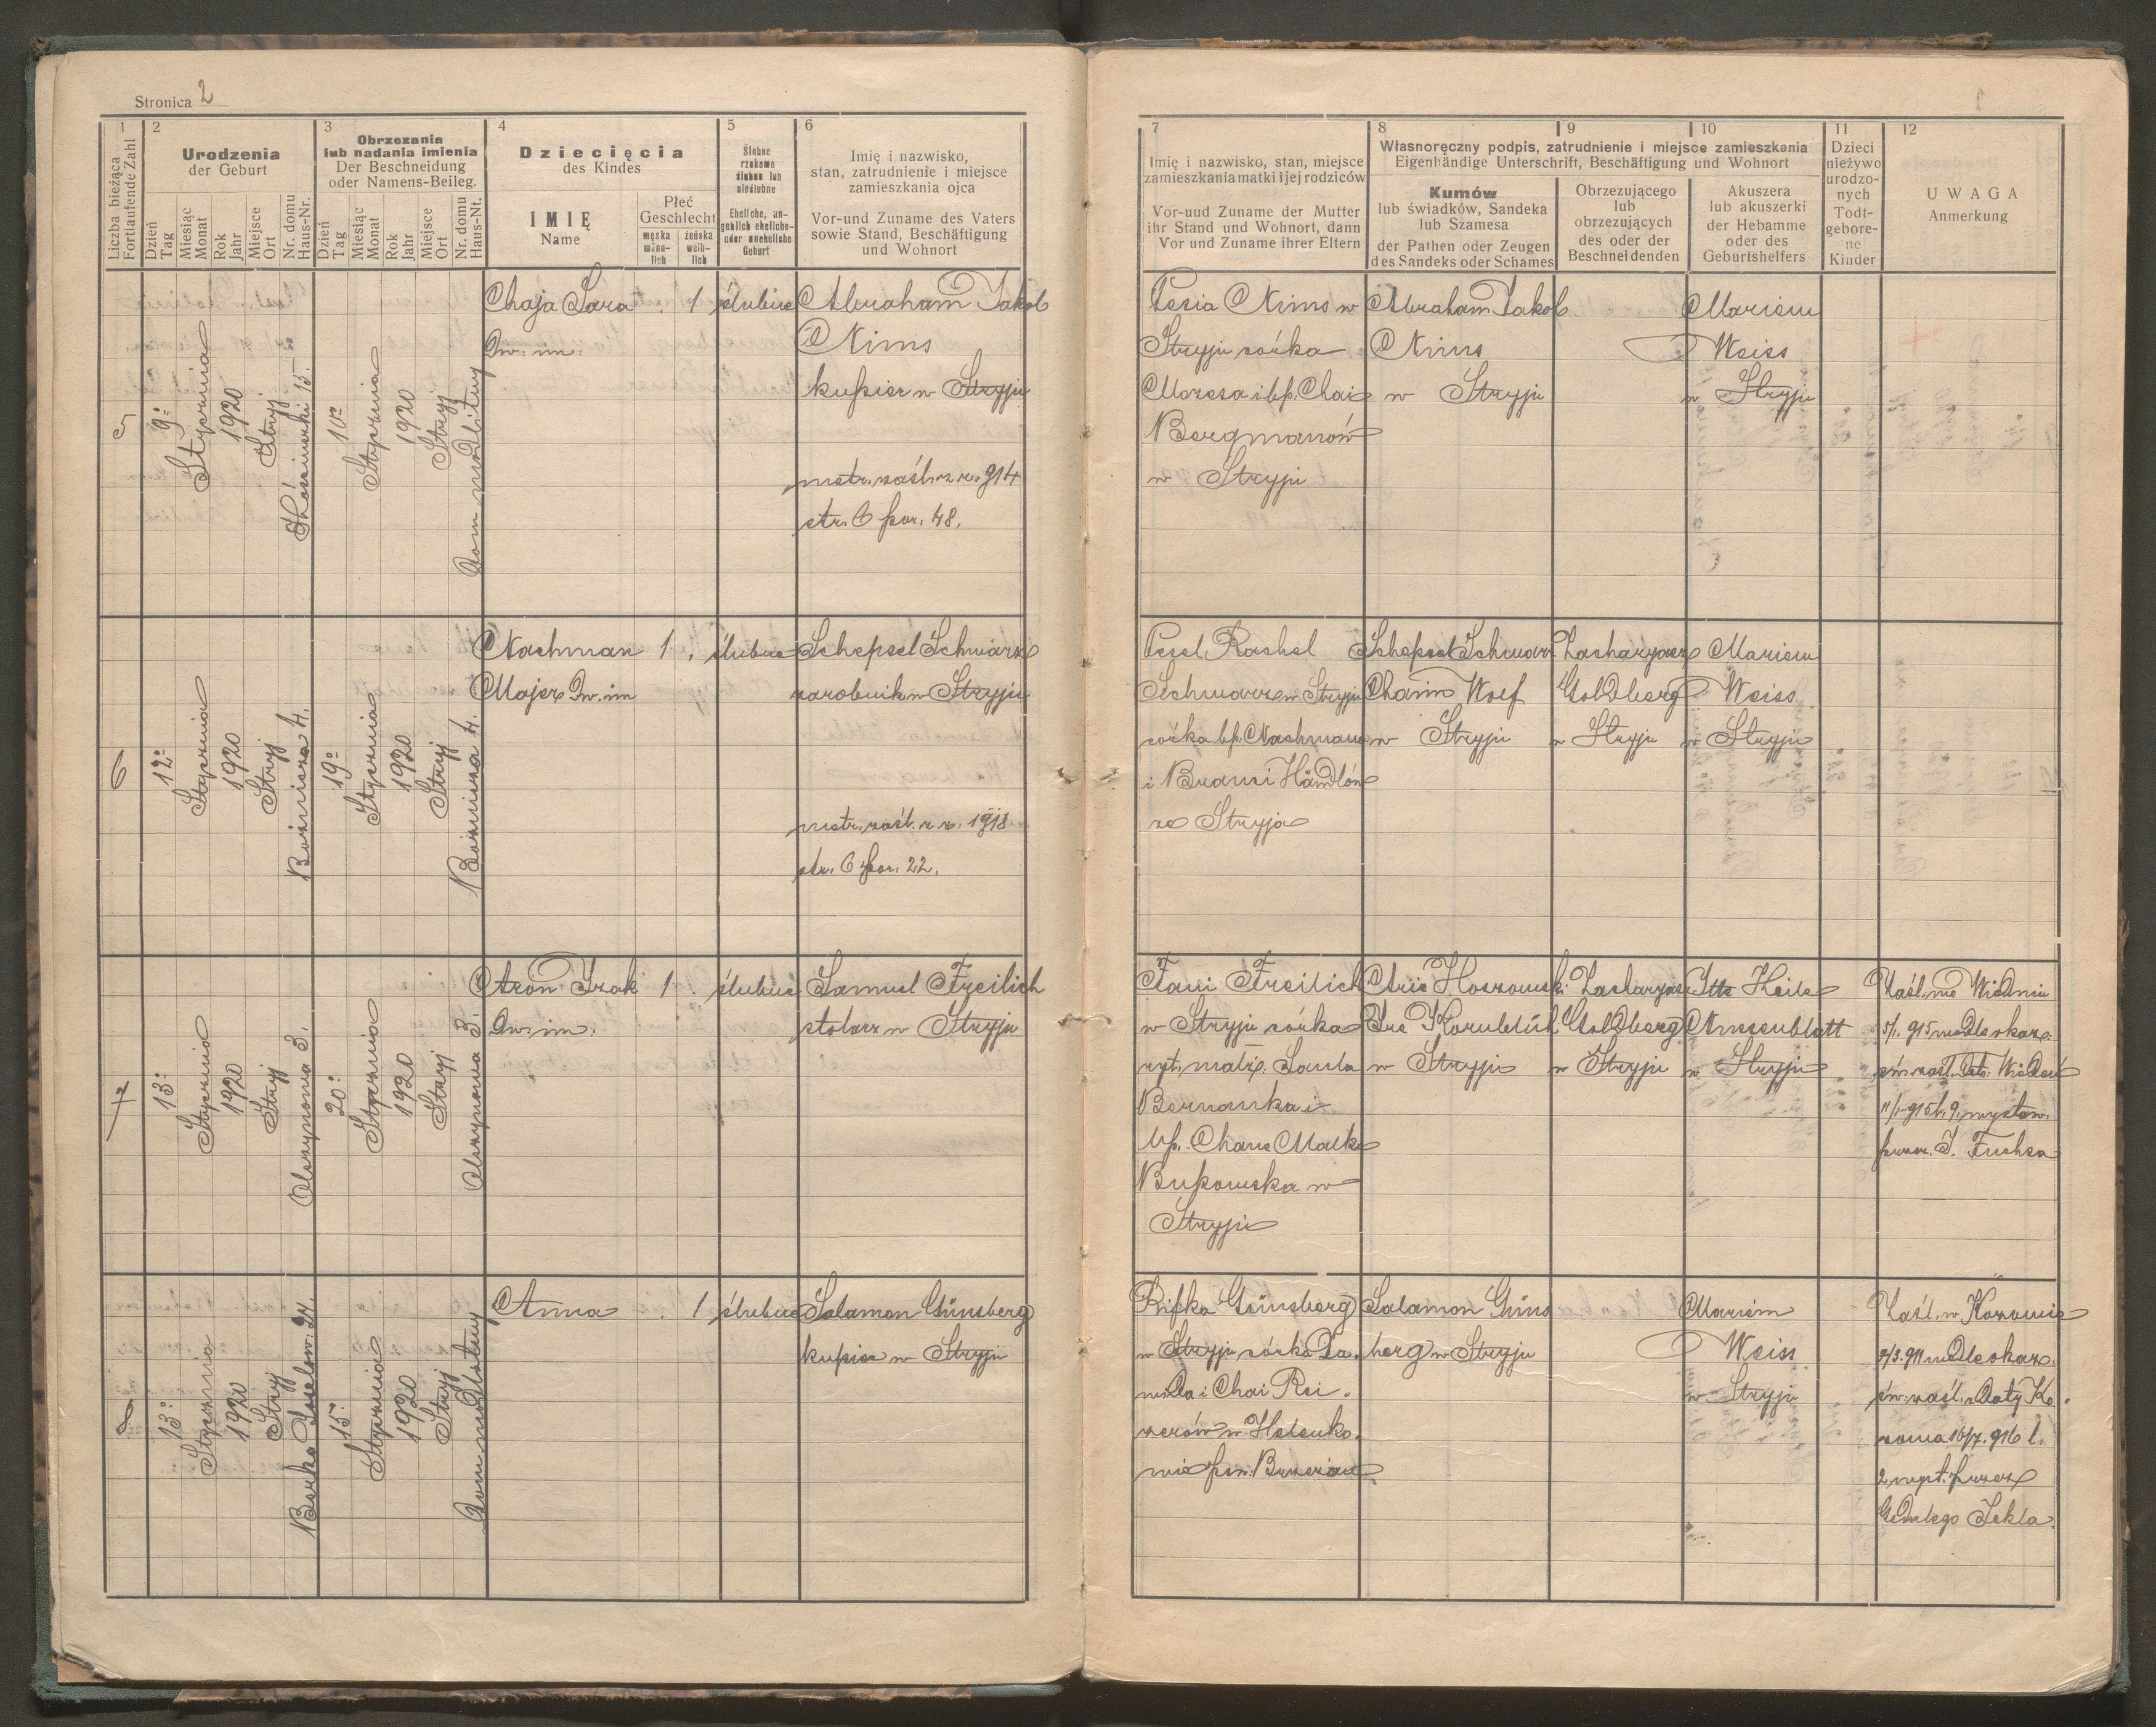 Stronica 2
1
Liczba bieżąca
Fortlaufende Zahl
2
Urodzenia
der Geburt
Dzień
Tag
Miesiąc
Monat
Rok
Jahr
Miejsce
Ort
Nr. domu
Haus-Nr.
3
Obrzezania
lub nadania imienia
Der Beschneidung
oder Namens-Beileg.
Dzień
Tag
Miesiąc
Monat
Rok
Jahr
Miejsce
Ort
Nr. domu
Haus-Nt.
4
Dziecięcia
des Kindes
IMIĘ
Name
Płeć
Geschlecht
męska
männ-
lich
żeńska
weib-
lich
5
Ślubne
rzekomo
ślubne lub
nieślubne
Eheliche, an-
geblich eheliche-
oder uneheliche
Geburt
6
Imię i nazwisko,
stan, zatrudnienie i miejsce
zamieszkania ojca
Vor-und Zuname des Vaters
sowie Stand, Beschäftigung
und Wohnort
7
Imię i nazwisko, stan, miejsce
zamieszkania matki i jej rodziców
Vor-uud Zuname der Mutter
ihr Stand und Wohnort, dann
Vor und Zuname ihrer Eltern
8
9
10
Własnoręczny podpis, zatrudnienie i miejsce zamieszkania
Eigenhändige Unterschrift, Beschäftigung und Wohnort
Kumów
lub świadków, Sandeka
lub Szamesa
der Pathen oder Zeugen
des Sandeks oder Schames
Obrzezującego
lub
obrzezujących
des oder der
Beschneidenden
Akuszera
lub akuszerki
der Hebamme
oder des
Geburtshelfers
11
Dzieci
nieżywo
urodzo-
nych
Todt-
gebore-
ne
Kinder
12
UWAGA
Anmerkung
5
9
Stycznia
1920
Stryj
15
10
Stycznia
1920
Stryj
Dom modlitwy
Chaja Sara . 1 ślubne
Dw. im.
Abraham Jakob
Nims
kupiec w Stryju
metr. zaśl. z r. 914
str. 6 poz. 48.
Pesia Nims w
Stryju córka
Mozesa i bp. Chai
Bergmanów
w Stryju
Abraham Jakob
Nims
w Stryju
Mariem
Weiss
w Stryju
6
12
Stycznia
1920
Stryj
Bożnicza 4.
19
Stycznia
1920
Stryj
Bożnicza 4.
Nachman 1 . ślubne
Majer Dw. im
Schepsel Schwarz
zarobnik w Stryju
metr. zaśl. z r. 1918
str. 6 poz. 22.
Pesel Rachel
Schwarz w Stryju
córka bp. Nachmana
i Branci Händlów
ze Stryja
Schepsel Schwarz
Chaim Wolf
w Stryju
Zacharyasz
Goldberg
w Stryju
Mariem
Weiss
w Stryju
7
13
Stycznia
1920
Stryj
Olszynowa 3.
20
Stycznia
1920
Stryj
Olszynowa 3.
Aron Izak 1 . ślubne
Dw. im.
Samuel Freilich
stolarz w Stryju
Fani Freilich
w Stryju córka
ryt. małż. Saula
Bernanka i
bp. Chane Malke
Bukowska w
Stryju
w Stryju
Zacharyasz
Goldberg
w Stryju
Itte Heile
Nussenblatt
w Stryju
Zaśl. we Wiedniu
5/1. 915 wedle okaz.
św. zaśl. Dto. Wiedeń
11/1 915 l. 9. wystaw.
przez. J. Fuchsa
8
13
Stycznia
1920
Stryj
Berka Joselow. 27.
15
Stycznia
1920
Stryj
Dom modlitwy
Anna . 1 ślubne
Salamon Günsberg
kupiec w Stryju
Rifka Günsberg
w Stryju córka Da-
wida i Chai Rei-
zerów w Helenko-
wie pow. Brzeżany
Salamon Güns
berg w Stryju
Mariem
Weiss
w Stryju
Zaśl. w Kozowie
3/3. 911 wedle okaz.
św. zaśl. z Daty Ko-
zowa 16/7. 916 l.
2 wyst. przez
Gedulego Jekla.